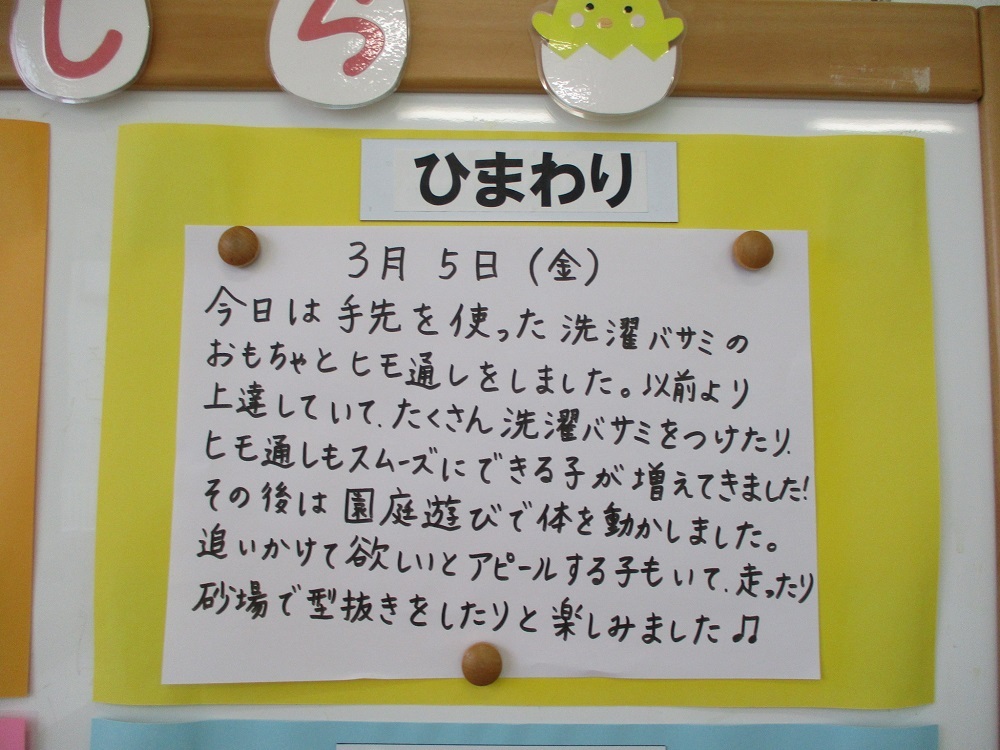 しら
ひまわり
3月 5日 (金)
今日は手先を使った洗濯バサミの
おもちゃとヒモ通しをしました。以前より
上達していて、たくさん洗濯バサミをつけたり、
ヒモ通しもスムーズにできる子が増えてきました!
その後は園庭遊びで体を動かしました。
追いかけて欲しいとアピールする子もいて、走ったり
砂場で型抜きをしたりと楽しみました♫